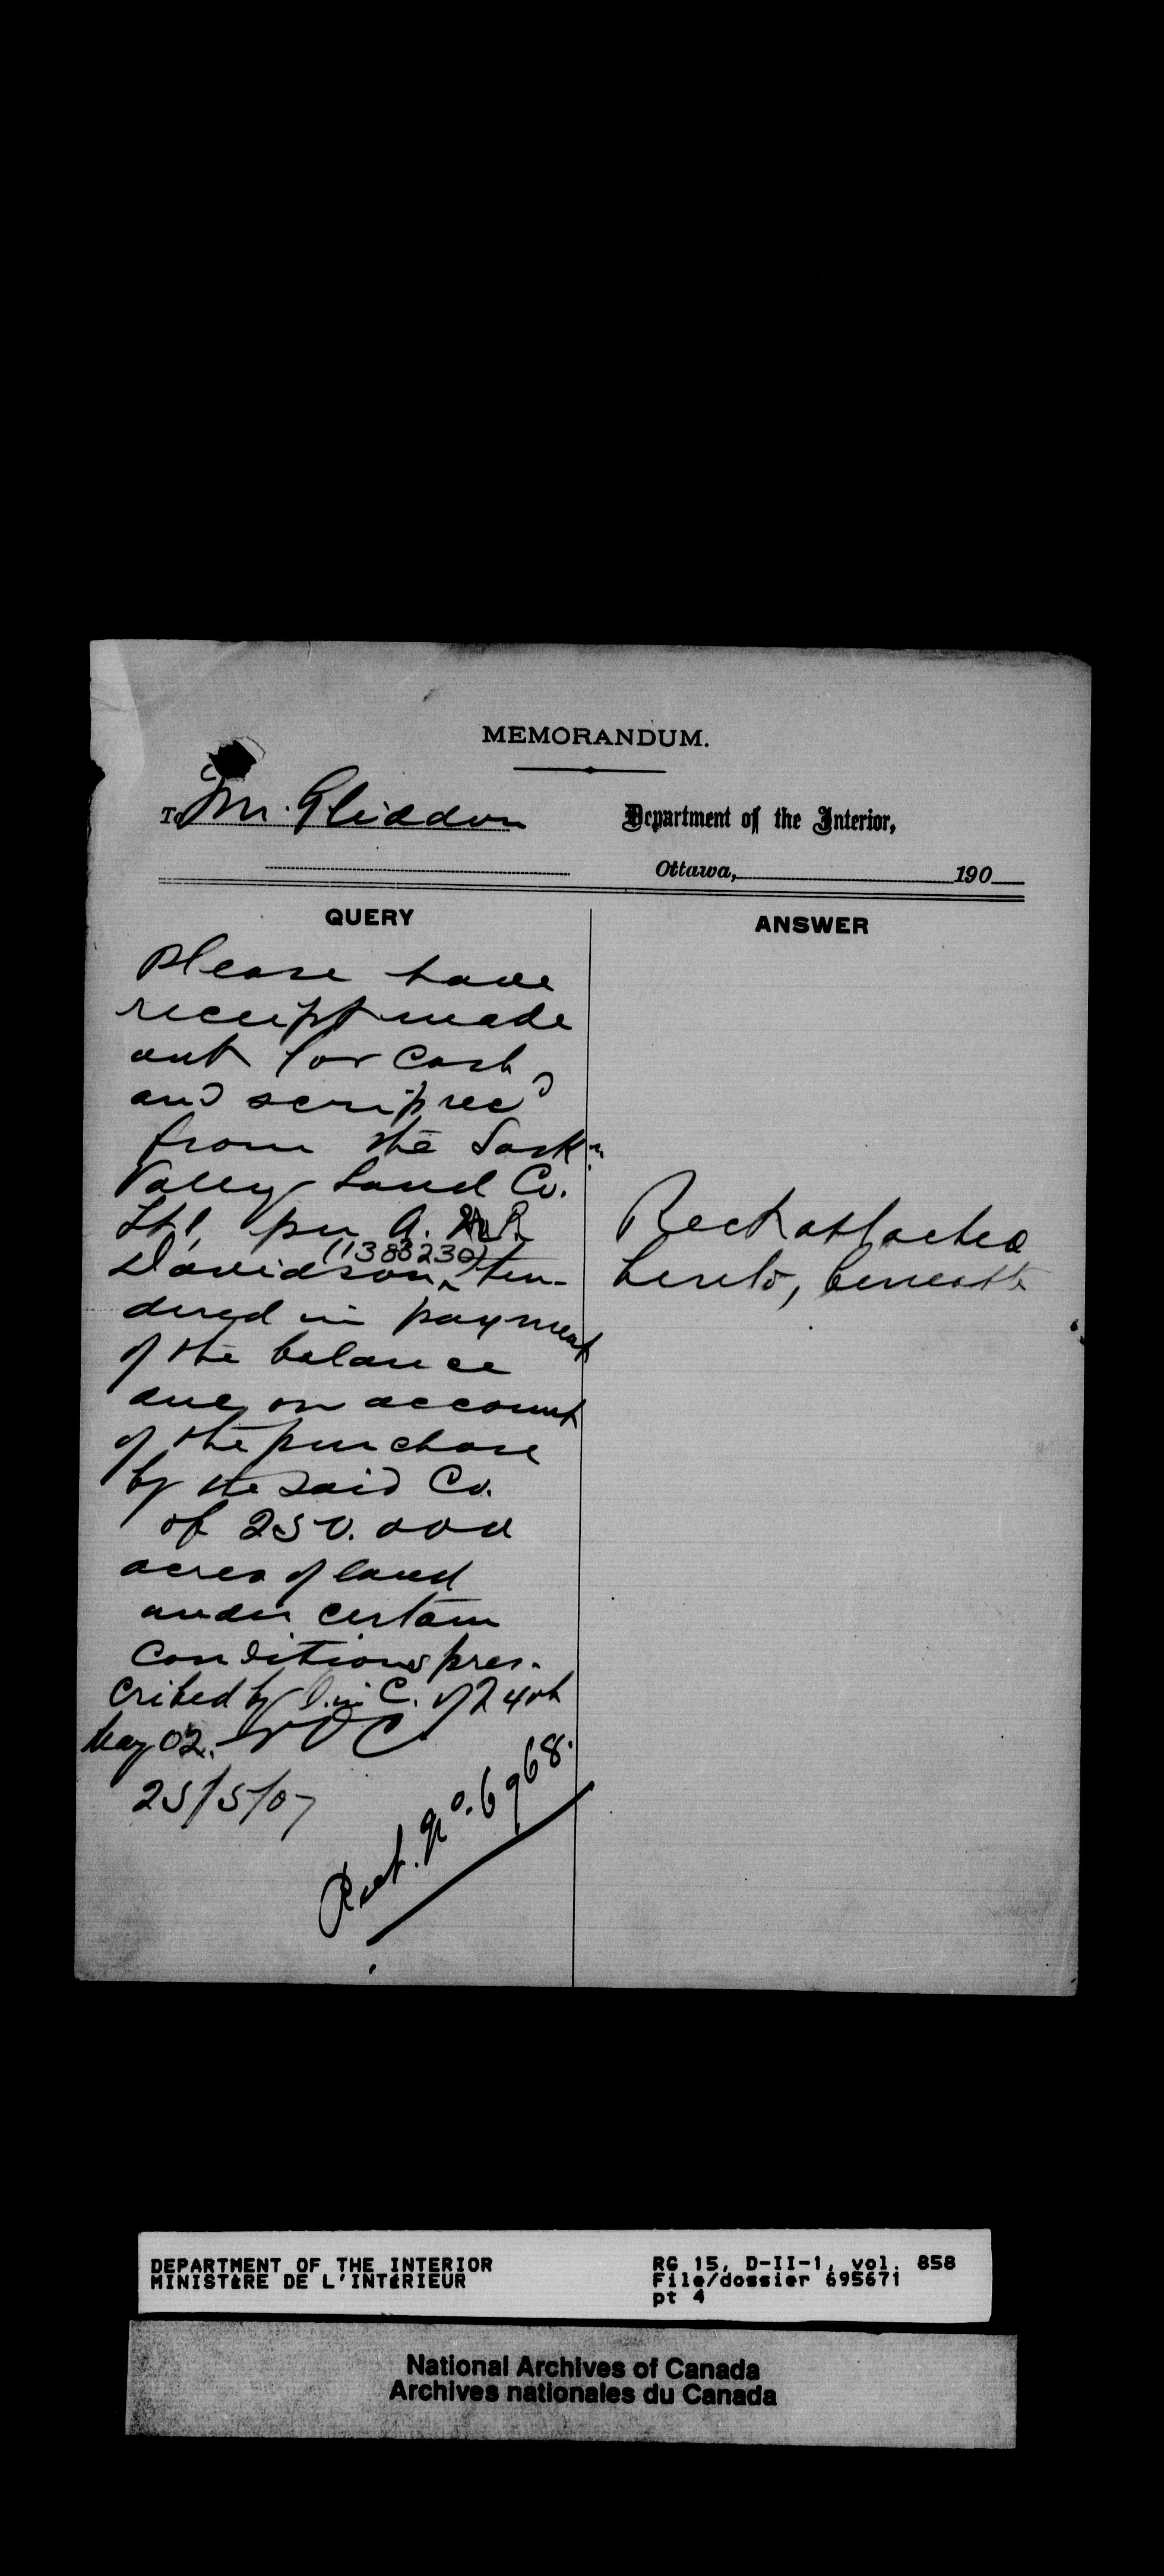 MEMORANDUM.
To Mr. Gliddon
Department of the Interior,
Ottawa, 190
QUERY
Please have
receipt made
out for cash
and scrip rec'd
from the Sask'n
Valley Land Co.
Ltd. per A.
(1383230)
Davidson, ten-
dered in payment
of the balance
due on account
of the purchase
by the said Co.
of 250.000
acres of land
under certain
conditions pres-
cribed by O. in C. of 24th
May 02.
25/5/07
Rect. No. 6968.
ANSWER
Rect attached
hereto, beneath
DEPARTMENT OF THE INTERIOR
MINISTÈRE DE L'INTÉRIEUR
RG 15, D-II-1, vol. 858
File/dossier 695671
pt 4
National Archives of Canada
Archives nationales du Canada